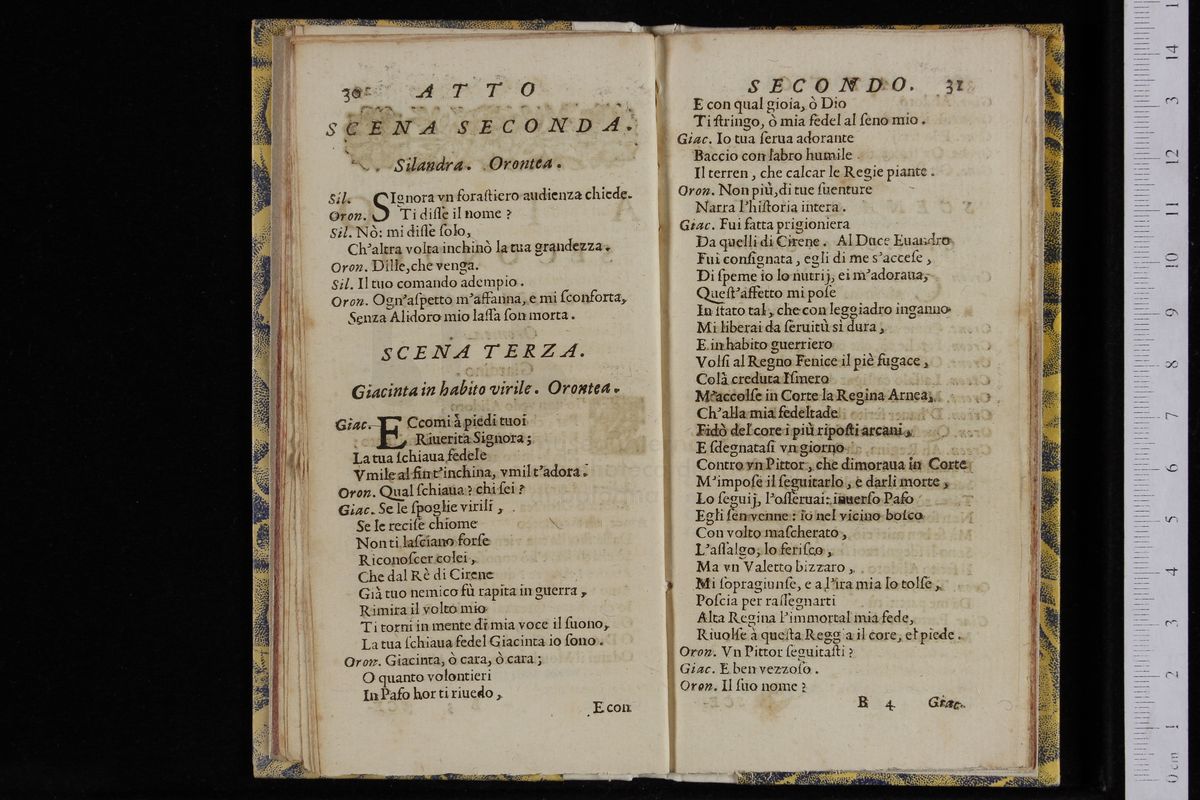 30 ATTO
SCENA SECONDA.
Silandra. Orontea.
Sil. SIgnora vn foraſtiero audienza chiede.
Oron. Ti diſſe il nome ?
Sil. Nò: mi diſſe ſolo,
Ch'altra volta inchinò la tua grandezza.
Oron. Dille,che venga.
Sil. Il tuo comando adempio.
Oron. Ogn'aſpetto m'affanna, e mi ſconforta,
Senza Alidoro mio laſſa ſon morta.
SCENA TERZA.
Giacinta in habito virile. Orontea.
Giac. ECcomi à piedi tuoi
Riuerita Signora ;
La tua ſchiaua fedele
Vmile al fin t'inchina, vmil t'adora.
Oron. Qual ſchiaua ? chi ſei ?
Giac. Se le ſpoglie virili ,
Se le reciſe chiome
Non ti laſciano forſe
Riconoſcer colei ,
Che dal Rè di Cirene
Già tuo nemico fù rapita in guerra ,
Rimira il volto mio
Ti torni in mente di mia voce il ſuono,
La tua ſchiaua fedel Giacinta io ſono .
Oron. Giacinta, ò cara, ò cara ;
O quanto volontieri
In Pafo hor ti riuedo ,
E con
SECONDO. 31
E con qual gioia, ò Dio
Ti ſtringo, ò mia fedel al ſeno mio .
Giac. Io tua ſerua adorante
Baccio con labro humile
Il terren , che calcar le Regie piante .
Oron. Non più,di tue ſuenture
Narra l'hiſtoria intera .
Giac. Fui fatta prigioniera
Da quelli di Cirene . Al Duce Euandro
Fui conſignata , egli di me s'acceſe ,
Di ſpeme io lo nutrij, ei m'adoraua,
Queſt'affetto mi poſe
In ſtato tal , che con leggiadro inganno
Mi liberai da ſeruitù sì dura ,
E in habito guerriero
Volſi al Regno Fenice il piè fugace ,
Colà creduta Iſmero
M'accolſe in Corte la Regina Arnea,
Ch'alla mia fedeltade
Fidò del core i più ripoſti arcani ,
E ſdegnataſi vn giorno
Contro vn Pittor , che dimoraua in Corte
M'impoſe il ſeguitarlo , e darli morte ,
Lo ſeguij, l'oſſeruai: inuerſo Pafo
Egli ſen venne : io nel vicino boſco
Con volto maſcherato ,
L'aſſalgo, lo feriſco ,
Ma vn Valetto bizzaro ,
Mi ſopragiunſe, e a l'ira mia lo tolſe ,
Poſcia per raſſegnarti
Alta Regina l'immortal mia fede,
Riuolſe à queſta Regg a il core, el piede .
Oron. Vn Pittor ſeguitaſti ?
Giac. E ben vezzoſo .
Oron. Il ſuo nome ?
B 4 Giac.